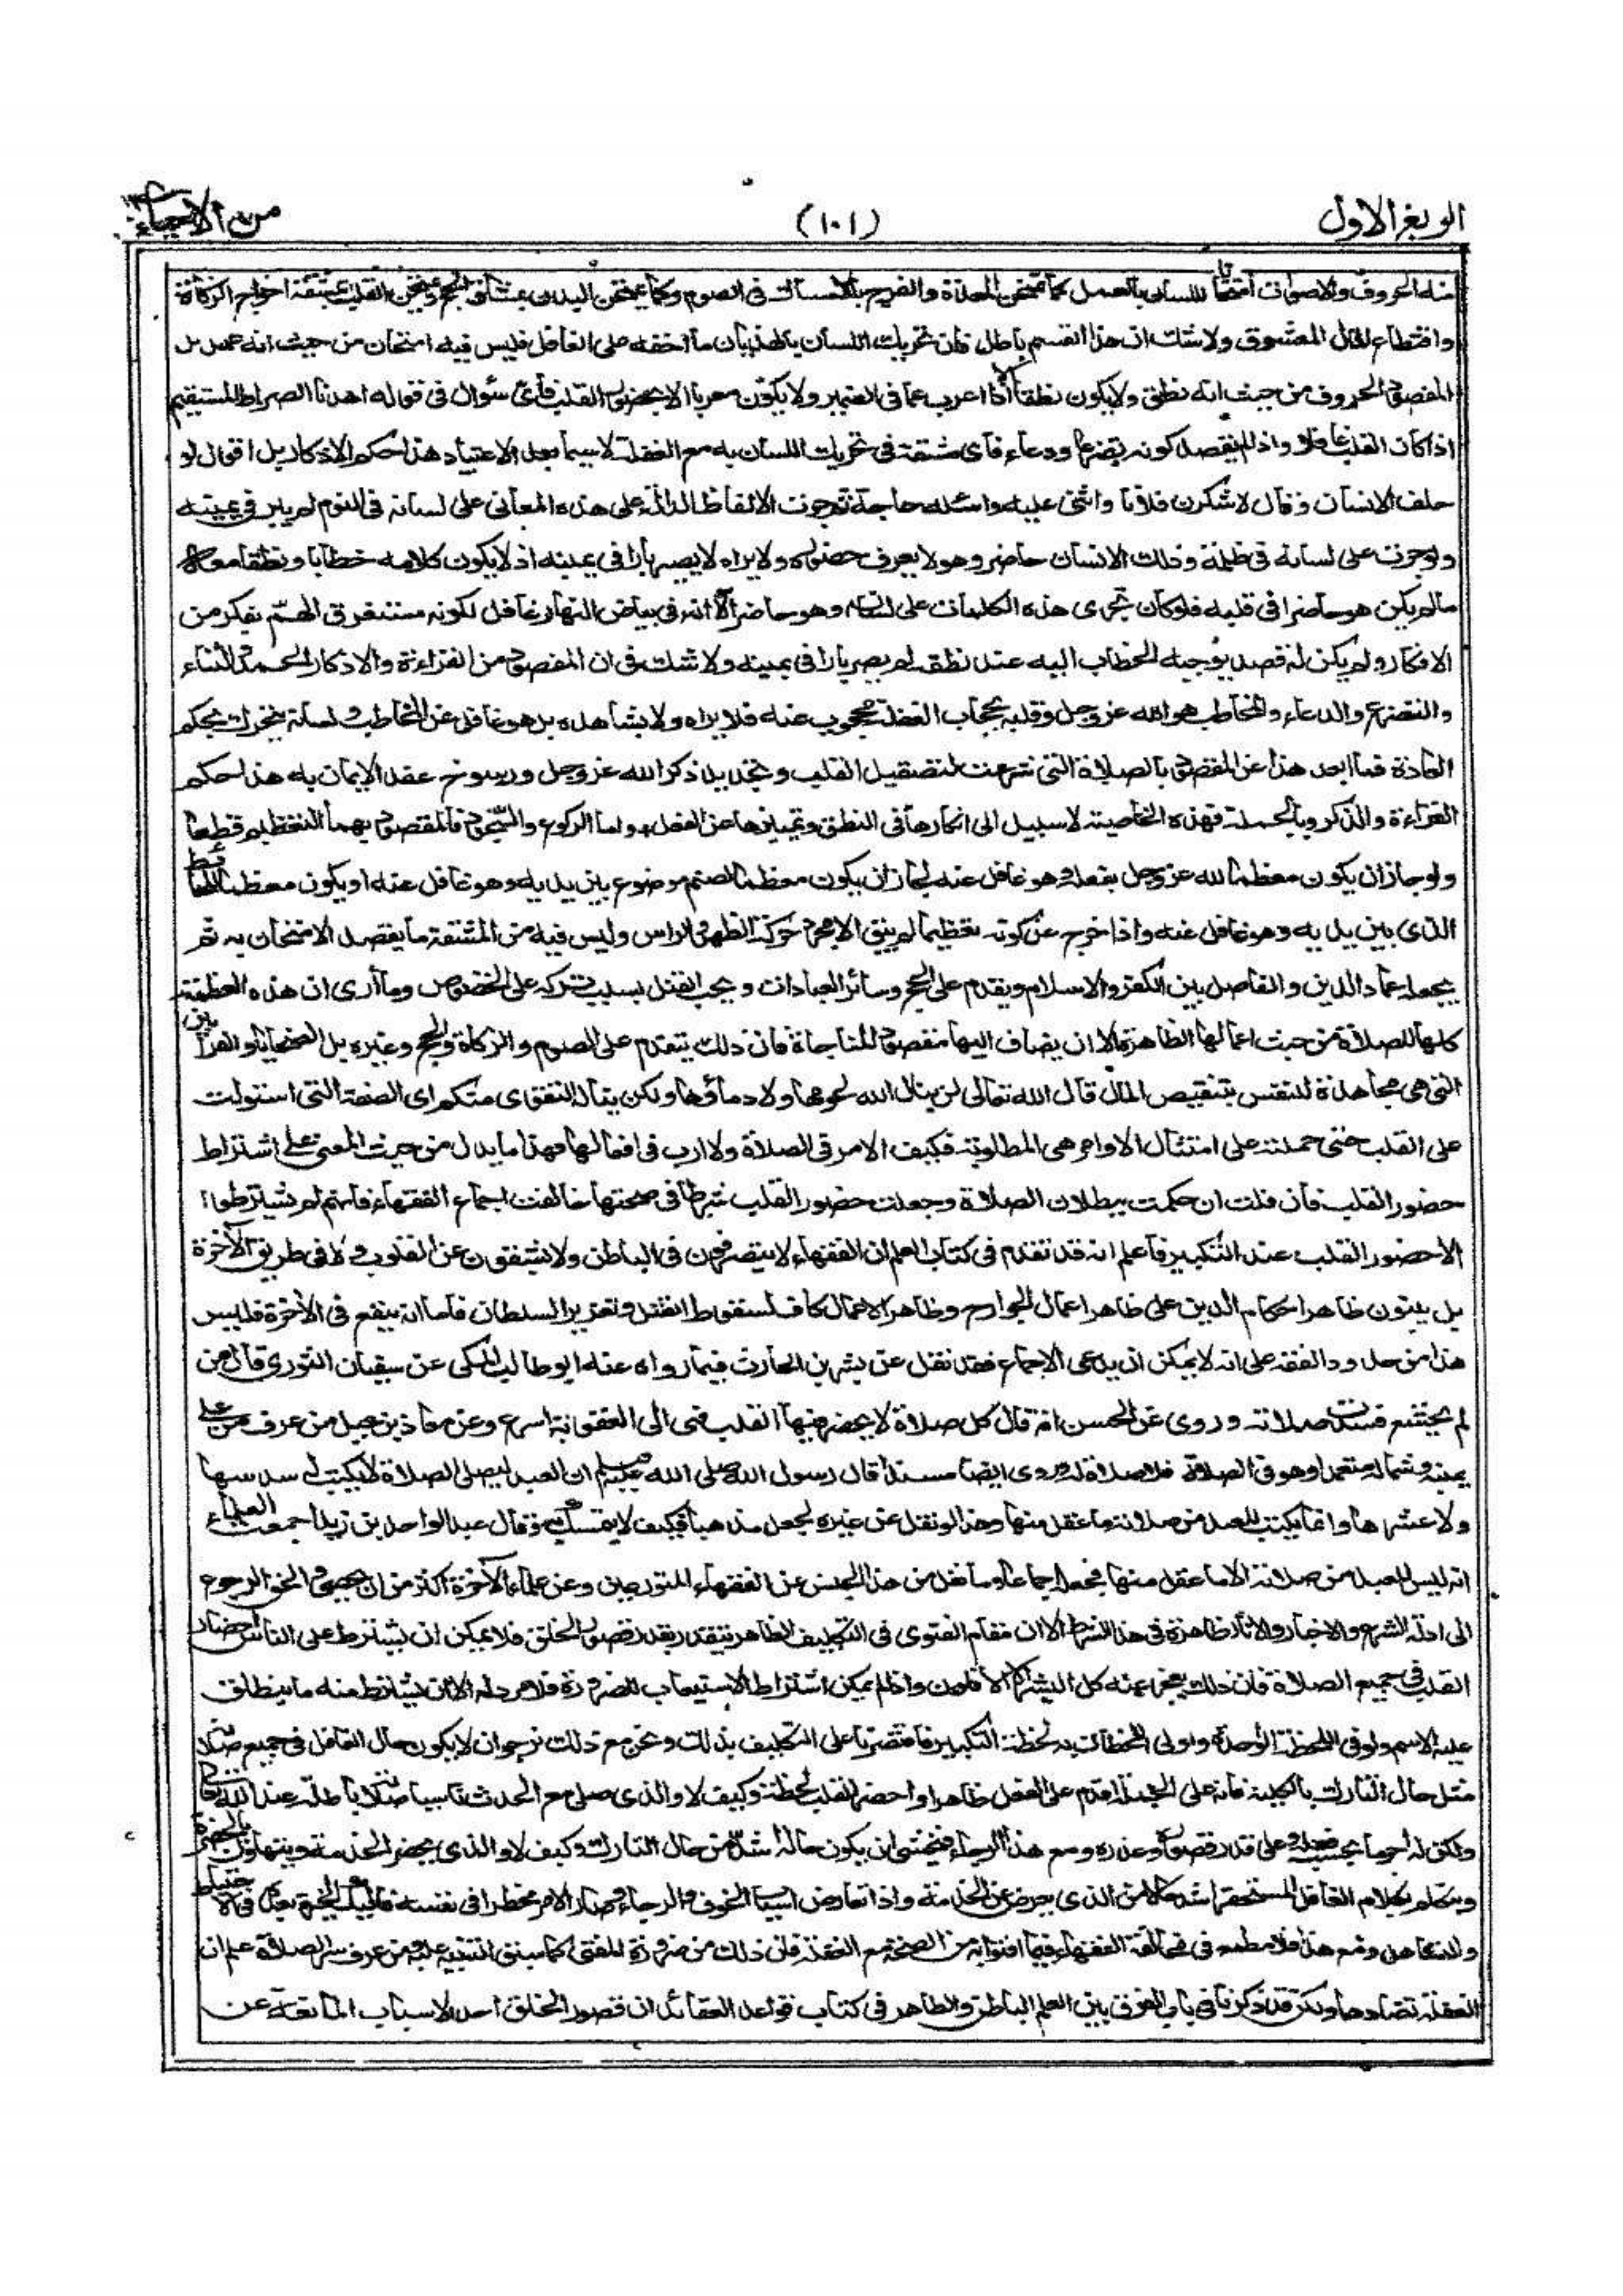 الربع الاول
(١٠١)
من الاحياء
منه الحروف والاصوات امتحانا للسان بالعمل كما تمتحن المعدة والفرج بالامساك فى الصوم وكما يمتحن البدن بمشاق الحج ويمتحن القلب بمشقة اخراج الزكاة
واقتطاع المال المعشوق ولا شك ان هذا القسم باطل فان تحريك اللسان بالهذيان ما اخفه على الغافل فليس فيه امتحان من حيث انه عمل بل
المقصود الحروف من حيث انه نطق ولا يكون نطقا الا اذا اعرب عما فى الضمير ولا يكون معربا الا بحضور القلب فأى سؤال فى قوله اهدنا الصراط المستقيم
اذا كان القلب غافلا واذا لم يقصد كونه تضرعا ودعاء فأى مشقة فى تحريك اللسان به مع الغفلة لا سيما بعد الاعتياد هذا حكم الاذكار بل اقول لو
حلف الانسان وقال لاشكرن فلانا واثنى عليه واسئله حاجة ثم جرت الالفاظ الدالة على هذه المعانى على لسانه فى النوم لم يبر فى يمينه
ولو جرت على لسانه فى ظلمة وذلك الانسان حاضر وهو لا يعرف حضوره ولا يراه لا يصير بارا فى يمينه اذ لا يكون كلامه خطابا ونطقا معه
ما لم يكن هو حاضرا فى قلبه فلو كان تجرى هذه الكلمات على لسانه وهو حاضر الا انه فى بياض النهار غافل لكونه مستغرق الهم بفكر من
الافكار ولم يكن له قصد توجيه الخطاب اليه عند نطقه لم يصر بارا فى يمينه ولا شك فى ان المقصود من القراءة والاذكار الحمد والثناء
والتضرع والدعاء والمخاطب هو الله عز وجل وقلبه بحجاب الغفلة محجوب عنه فلا يراه ولا يشاهده بل هو غافل عن المخاطب ولسانه يتحرك بحكم
العادة فما ابعد هذا عن المقصود بالصلاة التى شرعت لتصقيل القلب وتجديد ذكر الله عز وجل ورسوخ عقد الايمان به هذا حكم
القراءة والذكر وبالجملة فهذه الخاصية لا سبيل الى انكارها فى النطق وتمييزها عن الفعل واما الركوع والسجود فالمقصود بهما التعظيم قطعا
ولو جاز ان يكون معظما لله عز وجل بفعله وهو غافل عنه لجاز ان يكون معظما لصنم موضوع بين يديه وهو غافل عنه او يكون معظما للحائط
الذى بين يديه وهو غافل عنه واذا خرج عن كونه تعظيما لم يبق الا مجرد حركة الظهر والراس وليس فيه من المشقة ما يقصد الامتحان به ثم
يجعله عماد الدين والفاصل بين الكفر والاسلام ويقدم على الحج وسائر العبادات ويجب القتل بسبب تركه على الخصوص وما أرى ان هذه العظمة
كلها للصلاة من حيث اعمالها الظاهرة الا ان يضاف اليها مقصود المناجاة فان ذلك يتقدم على الصوم والزكاة والحج وغيره بل الضحايا والقرابين
التى هى مجاهدة للنفس بتنقيص المال قال الله تعالى لن ينال الله لحومها ولا دماؤها ولكن يناله التقوى منكم اى الصفة التى استولت
على القلب حتى حملته على امتثال الاوامر هى المطلوبة فكيف الامر فى الصلاة ولا ارب فى افعالها فهذا ما يدل من حيث المعنى على اشتراط
حضور القلب فان قلت ان حكمت ببطلان الصلاة وجعلت حضور القلب شرطا فى صحتها خالفت اجماع الفقهاء فانهم لم يشترطوا
الا حضور القلب عند التكبير فاعلم انه قد تقدم فى كتاب العلم ان الفقهاء لا يتصرفون فى الباطن ولا يشقون عن القلوب ولا فى طريق الآخرة
بل يبنون ظاهر احكام الدين على ظاهر اعمال الجوارح وظاهر الاعمال كاف لسقوط القتل وتعزير السلطان فاما انه ينفع فى الآخرة فليس
هذا من حدود الفقه على انه لا يمكن ان يدعى الاجماع فقد نقل عن بشر بن الحارث فيما رواه عنه ابو طالب المكى عن سفيان الثورى قال من
لم يخشع فسدت صلاته وروى عن الحسن انه قال كل صلاة لا يحضر فيها القلب فهى الى العقوبة اسرع وعن معاذ بن جبل من عرف من على
يمينه وشماله متعمدا وهو فى الصلاة فلا صلاة له وروى ايضا مسندا قال رسول الله صلى الله عليه وسلم ان العبد ليصلى الصلاة لا يكتب له سدسها
ولا عشرها وانما يكتب للعبد من صلاته ما عقل منها وهذا لو نقل عن غيره لجعل مذهبا فكيف لا يتمسك به وقال عبد الواحد بن زيد اجمعت العلماء
انه ليس للعبد من صلاته الا ما عقل منها فجعله اجماعا وما نقل من هذا الجنس عن الفقهاء المتورعين وعن علماء الآخرة اكثر من ان يحصى والحق الرجوع
الى ادلة الشرع والاخبار والآثار ظاهرة فى هذا الشرط الا ان مقام الفتوى فى التكليف الظاهر يتقدر بقدر قصور الخلق فلا يمكن ان يشترط على الناس احضار
القلب فى جميع الصلاة فان ذلك يعجز عنه كل البشر الا الاقلون واذا لم يمكن اشتراط الاستيعاب للضرورة فلا مرد له الا ان يشترط منه ما ينطلق
عليه الاسم ولو فى اللحظة الواحدة واولى اللحظات به لحظة التكبير فاقتصرنا على التكليف بذلك ونحن مع ذلك نرجو ان لا يكون حال الغافل فى جميع صلاته
مثل حال التارك بالكلية فانه على الجملة اقدم على الفعل ظاهرا واحضر القلب لحظة وكيف لا والذى صلى مع الحدث ناسيا صلاته باطلة عند الله تعالى
ولكن له اجر ما بحسب فعله وعلى قدر قصوره وعذره ومع هذا الرجاء فيخشى ان يكون حاله اشد من حال التارك وكيف لا والذى يحضر الخدمة ويتهاون بالحضرة
ويتكلم بكلام الغافل المستحقر اشد حالا من الذى يعرض عن الخدمة واذا تعارض اسباب الخوف والرجاء وصار الامر مخطرا فى نفسه فاليك الخيرة بعده فى الاحتياط
والتساهل ومع هذا فلا مطمع فى مخالفة الفقهاء فيما افتوا به من الصحة مع الغفلة فان ذلك من ضرورة المفتى كما سبق التنبيه عليه ومن عرف سر الصلاة علم ان
الغفلة تضادها ولكن قد ذكرنا فى باب الفرق بين العلم الباطن والظاهر فى كتاب قواعد العقائد ان قصور الخلق احد الاسباب المانعة عن